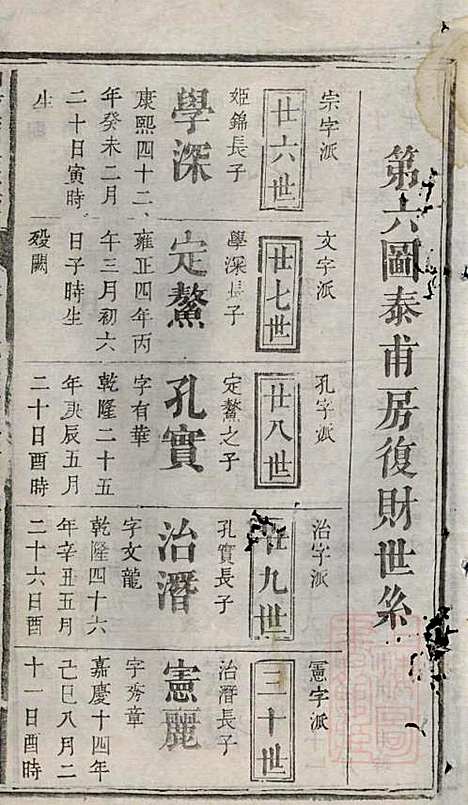 第六圖泰甫房復財世系
宗字派
廿六世
姬錦長子
學深
康熙四十二
年癸未二月
二十日寅時
生
文字派
廿七世
學深長子
定鰲
雍正四年丙
午三月初六
日子時生
歿闕
孔字派
廿八世
定鰲之子
孔實
字有華
乾隆二十五
年庚辰五月
二十日酉時
治字派
廿九世
孔實長子
治潛
字文龍
乾隆四十六
年辛丑五月
二十六日酉
憲字派
三十世
治潛長子
憲麗
字秀章
嘉慶十四年
己巳八月二
十一日酉時